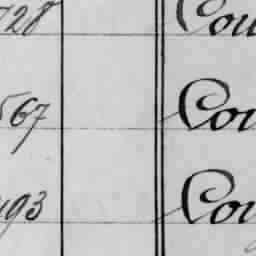 728 Cou
567 Cou
493 Cou